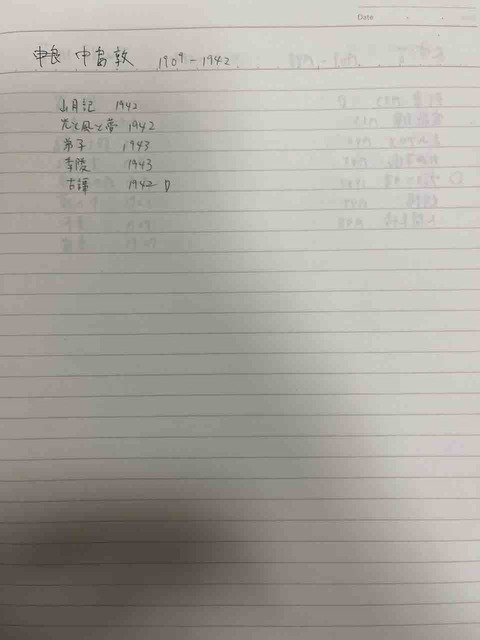 Date
中島敦 1909-1942
山月記 1942
光と風と夢 1942
弟子 1943
李陵 1943
古譚 1942 D